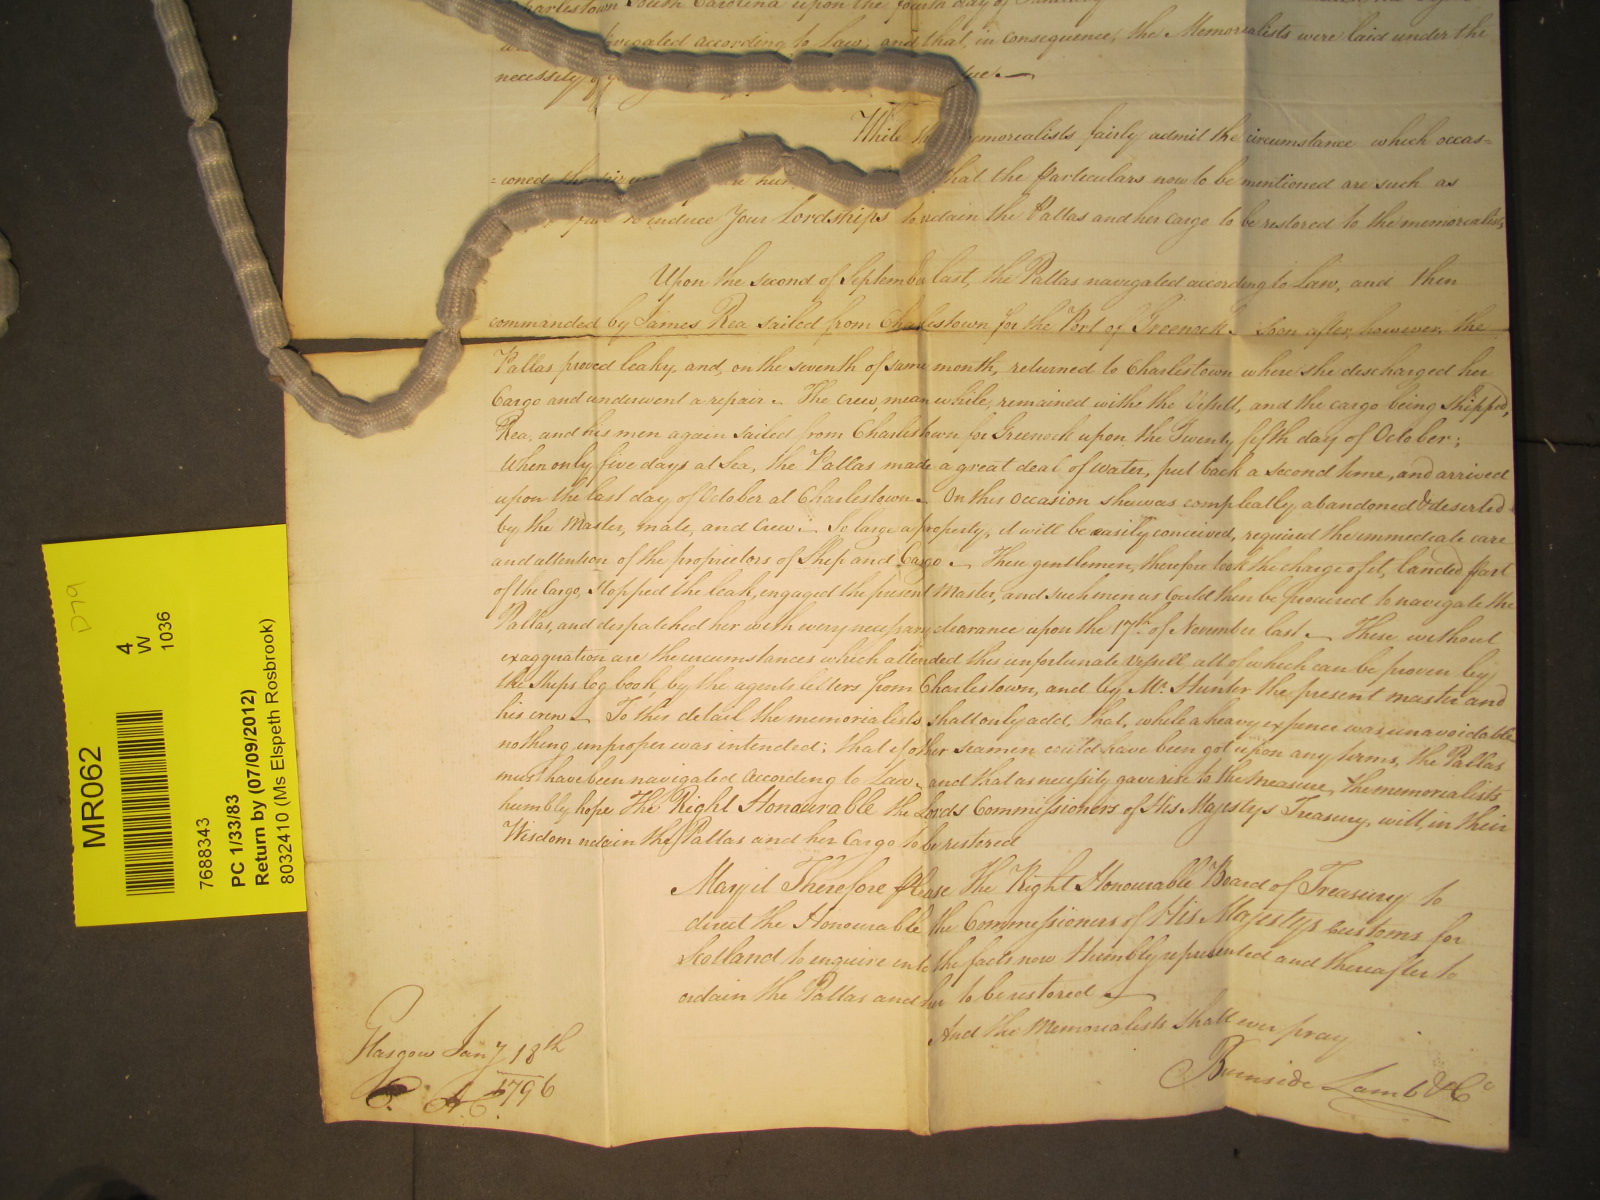 Charlestown South Carolina upon the fourth day of
navigated according to Law, and that, in consequence, the Memorialists were laid under the
necessity of
While the Memorialists fairly admit the circumstance which occas=
=ioned the that the particulars now to be mentioned are such as
to induce Your Lordships to ordain the Pallas and her cargo to be restored to the memorialists
Upon the second of September last, the Pallas navigated according to Law, and then
commanded by James Rea sailed from Charlestown for the Port of Greenock. Soon after, however, the
Pallas proved leaky, and, on the seventh of same month, returned to Charlestown where she discharged her
Cargo and underwent a repair. The crew, mean while, remained with the Vessell, and the cargo being shipped,
Rea, and his men again sailed from Charlestown for Greenock upon the Twenty fifth day of October;
When only five days at Sea, the Pallas made a great deal of water, put back a second time, and arrived
upon the last day of October at Charlestown. On this occasion she was compleatly abandoned & deserted
by the Master, mate, and Crew. So large a property, it will be easily conceived, required the immediate care
and attention of the proprietors of Ship and Cargo. These gentlemen, therefore took the charge of it, landed part
of the Cargo, stopped the leak, engaged the present Master, and such men as could then be procured to navigate the
Pallas, and despatched her with every necessary clearance upon the 17th of November last. These without
exaggeration are the circumstances which attended this unfortunate Vessell all of which can be proven by
the Ships log book, by the agents letters from Charlestown, and by Mr. Hunter the present master and
his crew. To this detail the memorialists shall only add, that, while a heavy expence was unavoidable
nothing improper was intended; that if other seamen could have been got upon any terms, the Pallas
must have been navigated according to Law, and that as necessity gave rise to the measure, the memorialists
humbly hope The Right Honourable the Lords Commissioners of His Majestys Treasury, will, in their
Wisdom ordain the Pallas and her Cargo to be restored
May it Therefore please The Right Honourable Board of Treasury to
direct the Honourable the Commissioners of His Majestys Customs for
Scotland to enquire into the facts now Humbly represented and thereafter to
ordain the Pallas and her to be restored
And the Memorialists shall ever pray
Burnside Lamb & Co
Glasgow Jany 18th
1796
D79
MR062
4
W
1036
7688343
PC 1/33/83
Return by (07/09/2012)
8032410 (Ms Elspeth Rosbrook)